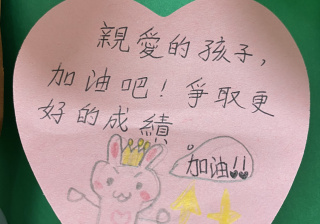 親愛的孩子,
加油吧！爭取更
好的成績。
加油!!